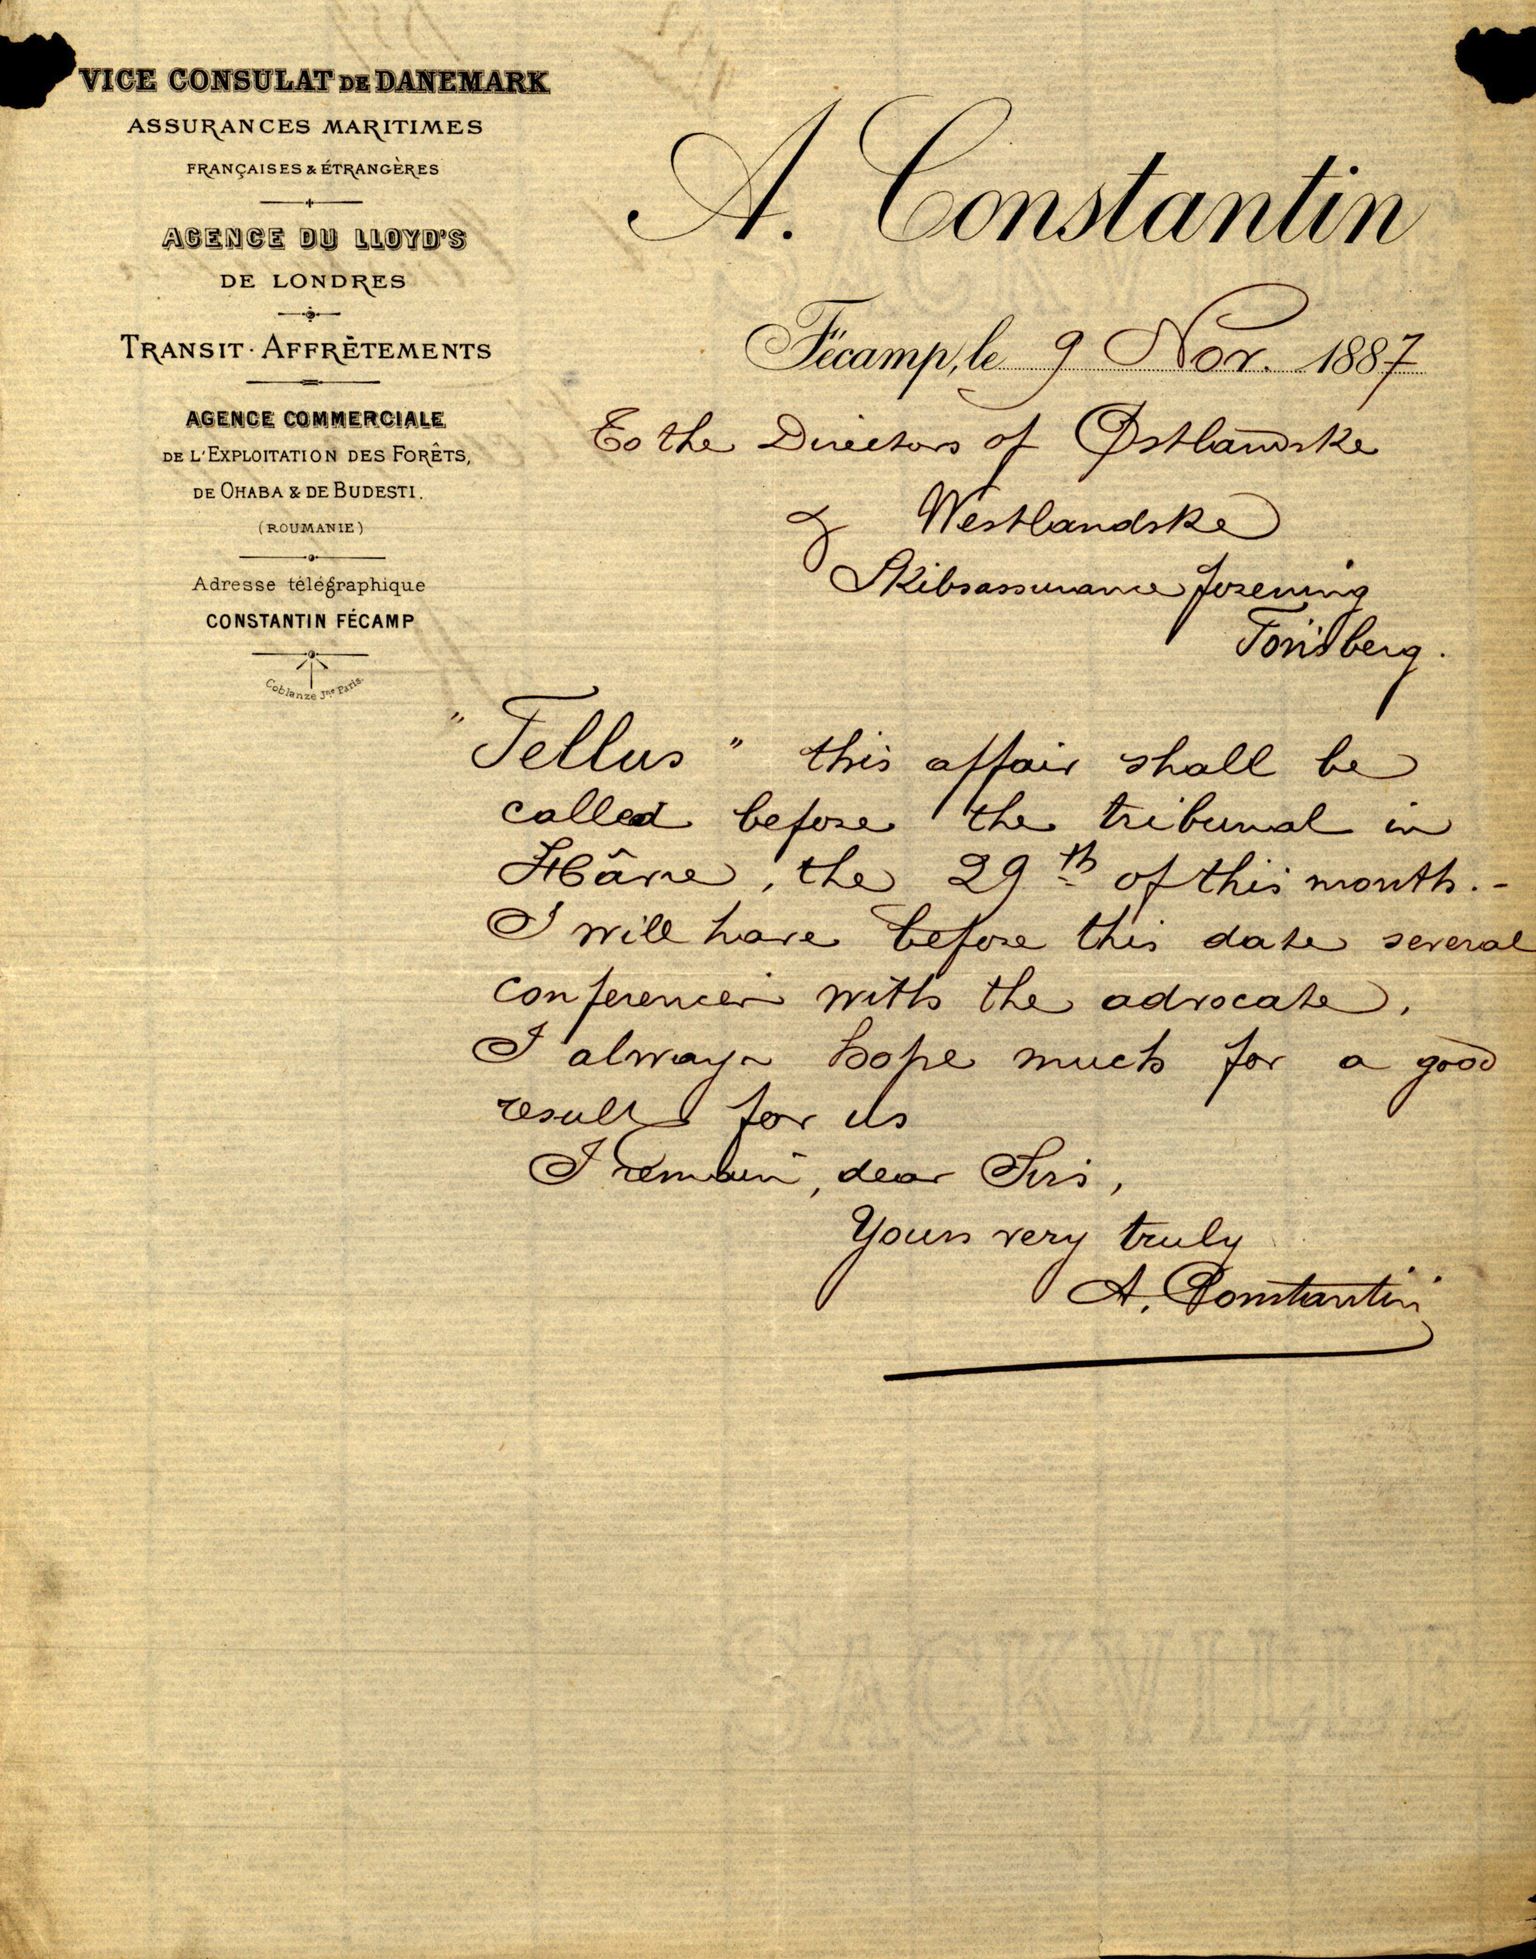 VICE CONSULAT DE DANEMARK
ASSURANCES MARITIMES
FRANÇAISES & ÉTRANGÈRES
AGENCE DU LLOYD'S
DE LONDRES
TRANSIT · AFFRÈTEMENTS
AGENCE COMMERCIALE
DE L'EXPLOITATION DES FORÊTS,
DE OHABA & DE BUDESTI.
(ROUMANIE)
Adresse télégraphique
CONSTANTIN FÉCAMP
Coblanze Jne Paris.
A. Constantin
Fécamp, le 9 Nov. 1887
To the Directors of Østlandske
& Westlandske
Skibsassurance forening
Tönsberg.
"Tellus" this affair shall be
called before the tribunal in
Hâvre, the 29th of this month.-
I will have before this date several
conferences with the advocate.
I always hope much for a good
result for us
I remain, dear Sirs,
Yours very truly
A. Constantin
SACKVILLE